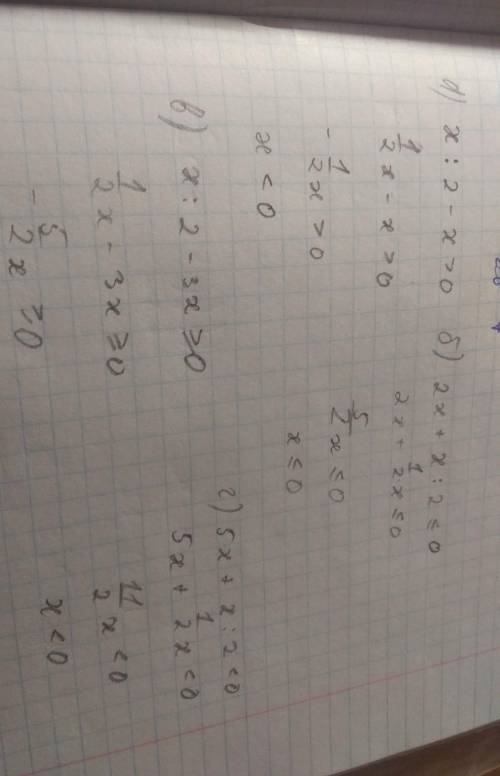 а) x : 2 - x > 0
1/2 x - x > 0
- 1/2 x > 0
x < 0
б) 2x + x : 2 ≤ 0
2x + 1/2 x ≤ 0
5/2 x ≤ 0
x ≤ 0
в) x : 2 - 3x ≥ 0
1/2 x - 3x ≥ 0
- 5/2 x ≥ 0
г) 5x + x : 2 < 0
5x + 1/2 x < 0
11/2 x < 0
x < 0